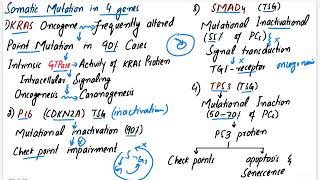 Somatic Mutation in 4 genes
1) KRAS Oncogene → Frequently altered
Point Mutation in 90% Cases
Intrinsic GTPase → Activity of KRAS Protein
Intracellular Signaling
Oncogenesis → Carcinogenesis
2) P16 (CDKN2A) TSG (inactivation)
Mutational inactivation (90%)
Check point impairment
3) SMAD4 (TSG)
Mutational Inactivational
(55% of PCs)
Signal transduction
TGF-receptor oncogenesis
4) TP53 (TSG)
Mutational Inaction
(50-70% of PCs)
P53 protien
Check points
apoptosis &
Senescence